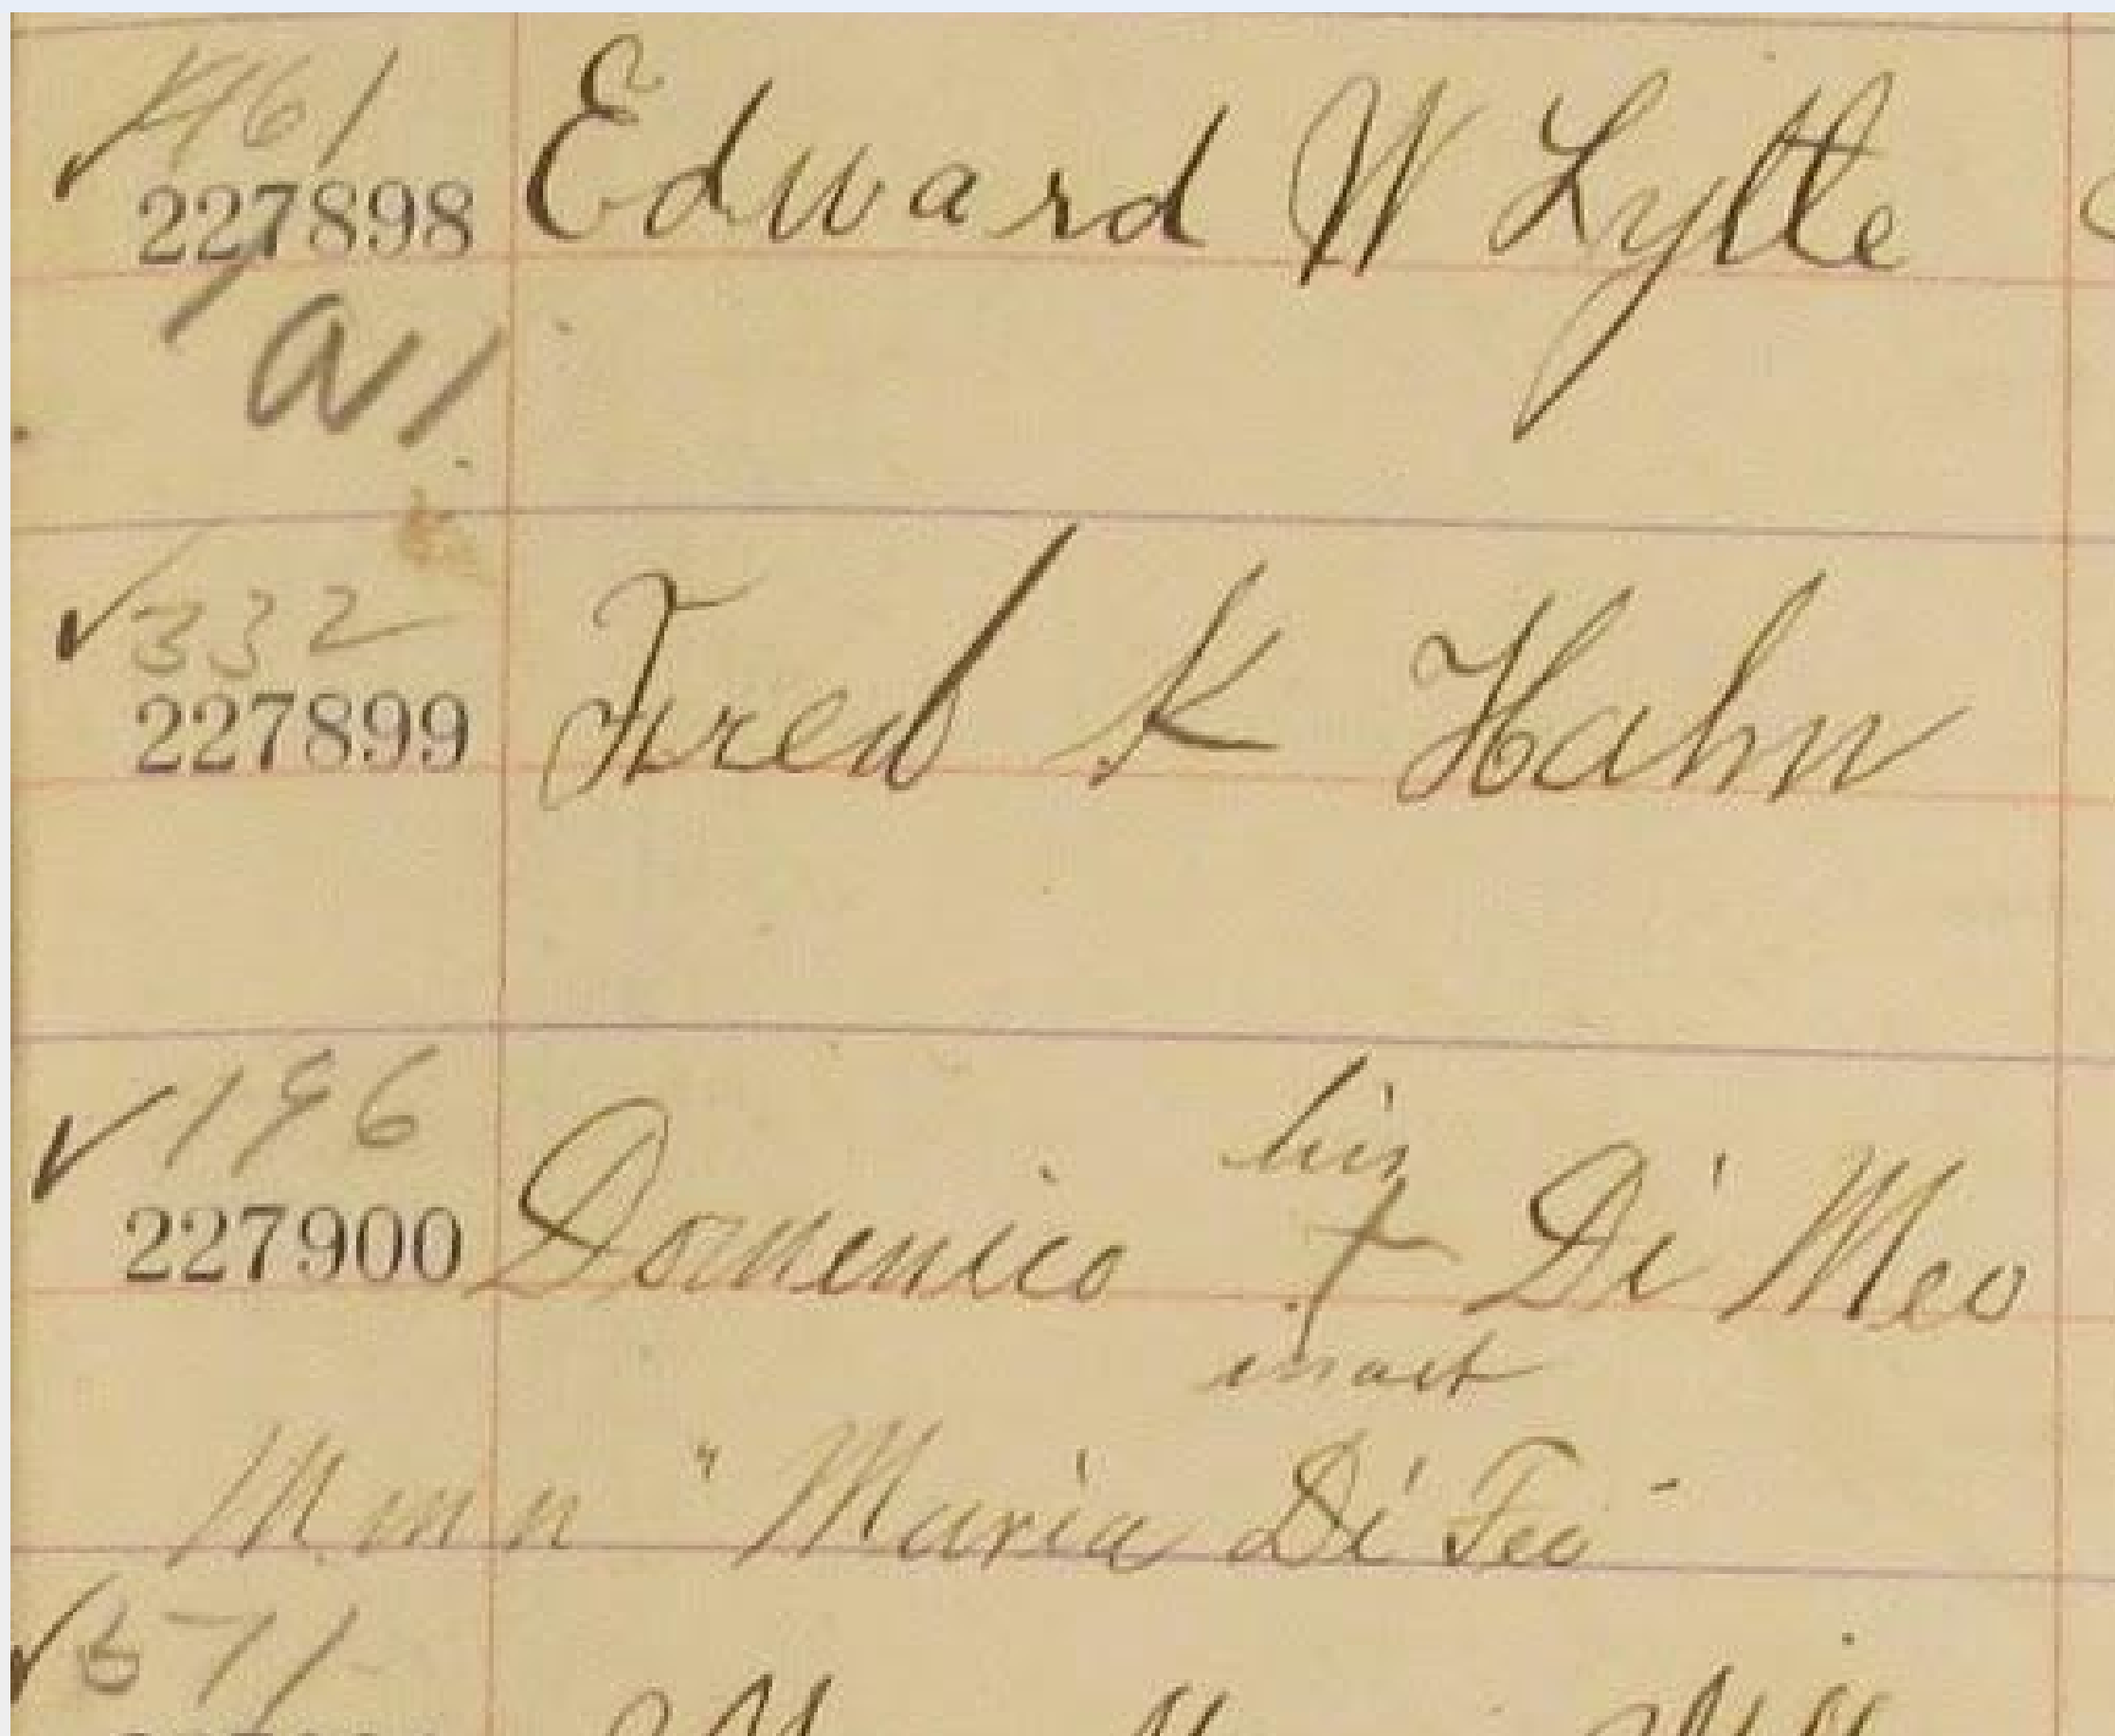 461
227898 Edward W Lytle
332
227899 Fred K Hahn
196
his
227900 Domenico + Di Meo
mark
" Maria Di Feo "
371